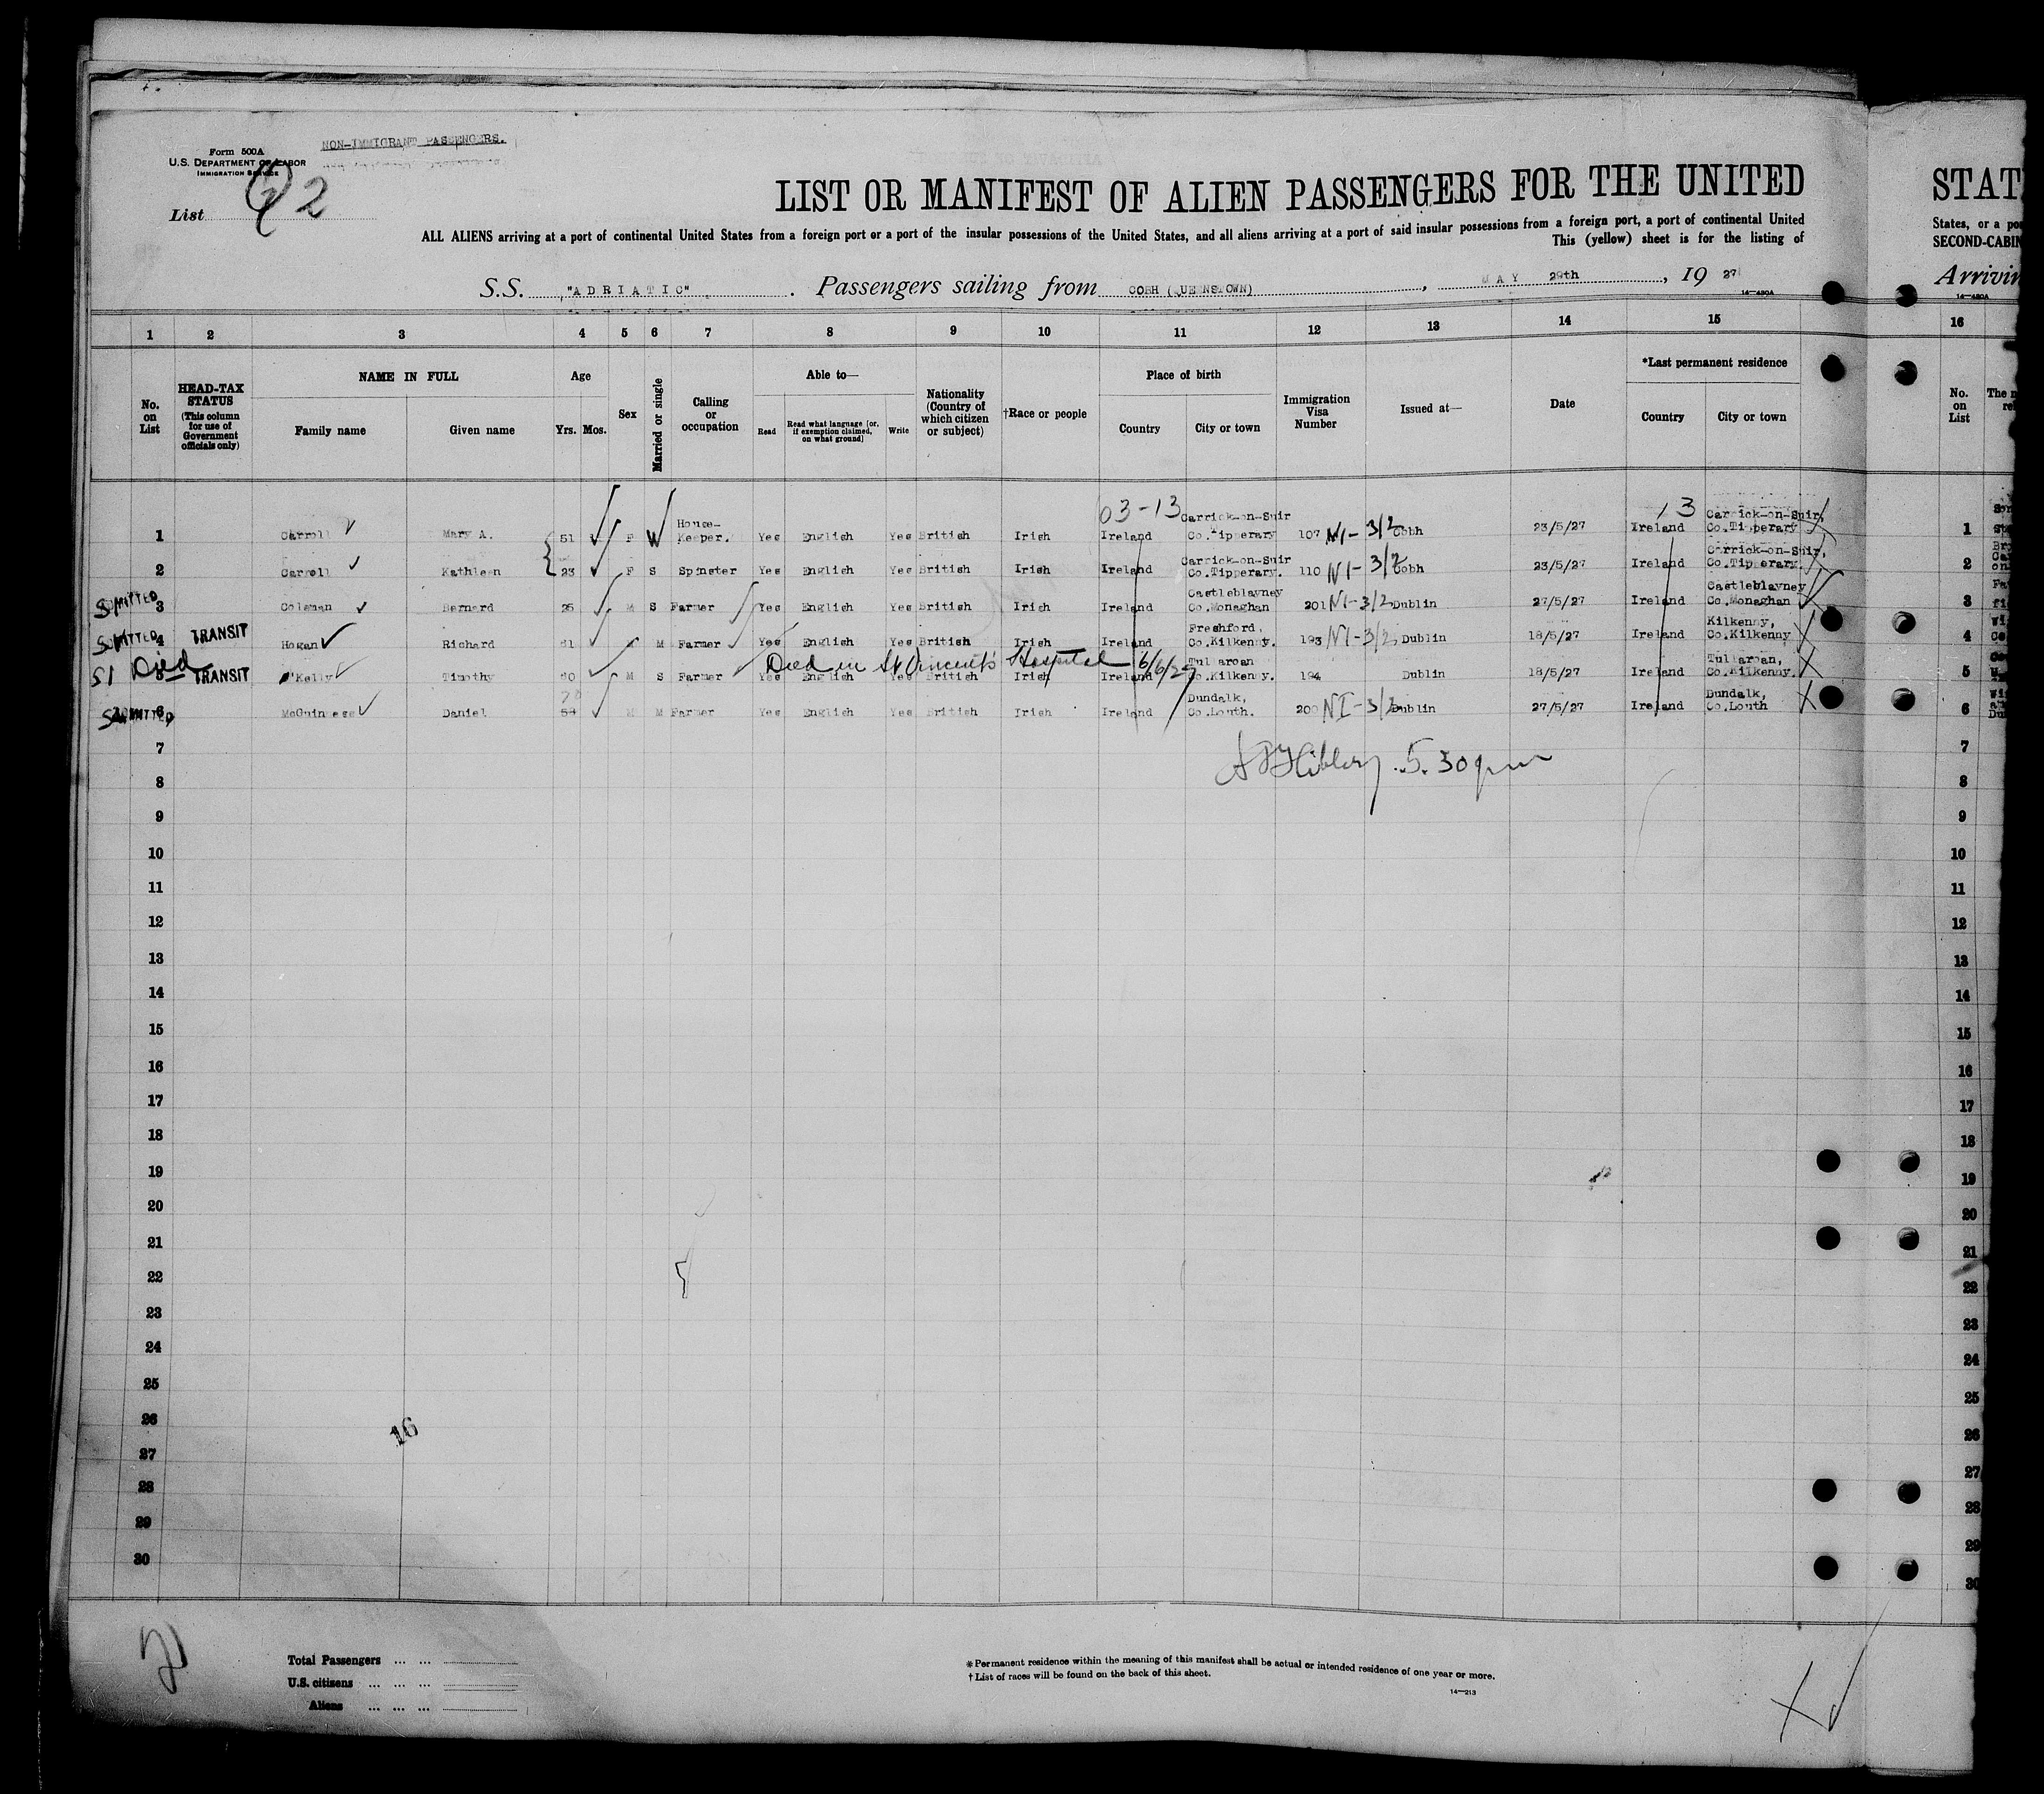 NON-IMMIGRANT PASSENGERS.
Form 500A
U.S. DEPARTMENT OF LABOR
IMMIGRATION SERVICE
List 2
LIST OR MANIFEST OF ALIEN PASSENGERS FOR THE UNITED
STAT
ALL ALIENS arriving at a port of continental United States from a foreign port or a port of the insular possessions of the United States, and all aliens arriving at a port of said insular possessions from a foreign port, a port of continental United
States, or a po
This (yellow) sheet is for the listing of
SECOND-CABIN
S.S. "ADRIATIC". Passengers sailing from COBH (QUEENSTOWN), MAY 29th, 19 27
Arrivin
14-480A
14-480A
1 2 3 4 5 6 7 8 9 10 11 12 13 14 15 16
No. on List
HEAD-TAX STATUS (This column for use of Government officials only)
NAME IN FULL
Family name Given name
Age
Yrs. Mos.
Sex
Married or single
Calling or occupation
Able to—
Read
Read what language [or, if exemption claimed, on what ground]
Write
Nationality (Country of which citizen or subject)
†Race or people
Place of birth
Country City or town
Immigration Visa Number
Issued at—
Date
*Last permanent residence
Country City or town
No. on List
03-13
3
1 Carroll Mary A. 51 F W House-Keeper. Yes English Yes British Irish Ireland Carrick-on-Suir Co.Tipperary 107 NI-3/2 Cobh 23/5/27 Ireland Carrick-on-Suir, Co.Tipperary 1
2 Carroll Kathleen 23 F S Spinster Yes English Yes British Irish Ireland Carrick-on-Suir Co.Tipperary. 110 NI-3/2 Cobh 23/5/27 Ireland Carrick-on-Suir, Co.Tipperary. 2
SI ADMITTED 3 Coleman Bernard 26 M S Farmer Yes English Yes British Irish Ireland Castleblayney Co.Monaghan 201 NI-3/2 Dublin 27/5/27 Ireland Castleblayney Co.Monaghan 3
SI ADMITTED 4 TRANSIT Hogan Richard 61 M M Farmer Yes English Yes British Irish Ireland Freshford, Co.Kilkenny. 193 NI-3/2 Dublin 18/5/27 Ireland Kilkenny, Co.Kilkenny 4
Died in St Vincent's Hospital 6/6/27
SI Died 5 TRANSIT O'Kelly Timothy 60 M S Farmer Yes English Yes British Irish Ireland Tullaroan Co.Kilkenny. 194 Dublin 18/5/27 Ireland Tullaroan, Co.Kilkenny. 5
SI ADMITTED 6 McGuinness Daniel M M Farmer Yes English Yes British Irish Ireland Dundalk, Co.Louth. 200 NI-3/2 Dublin 27/5/27 Ireland Dundalk, Co.Louth 6
7 7
5.30 pm
8 8
9 9
10 10
11 11
12 12
13 13
14 14
15 15
16 16
17 17
18 18
19 19
20 20
21 21
22 22
23 23
24 24
25 25
26 26
16
27 27
28 28
29 29
30 30
2
Total Passengers ... ...
U.S. citizens ... ... ...
Aliens ... ... ...
*Permanent residence within the meaning of this manifest shall be actual or intended residence of one year or more.
†List of races will be found on the back of this sheet.
14-213